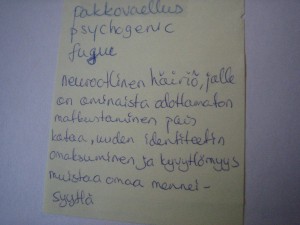 pakkovaellus
psychogenic
fugue
neuroottinen häiriö, jolle
on ominaista odottamaton
matkustaminen pois
kotoa, uuden identiteetin
omaksuminen ja kyvyttömyys
muistaa omaa mennei-
syyttä